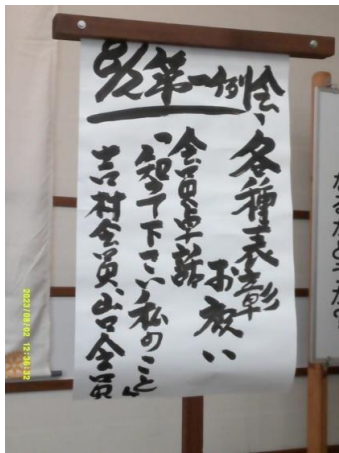 8/2第一例会、各種表彰
お祝い
会員卓話
「知って下さい私のこと」
吉村会員、山口会員
2023/08/02 12:36:32